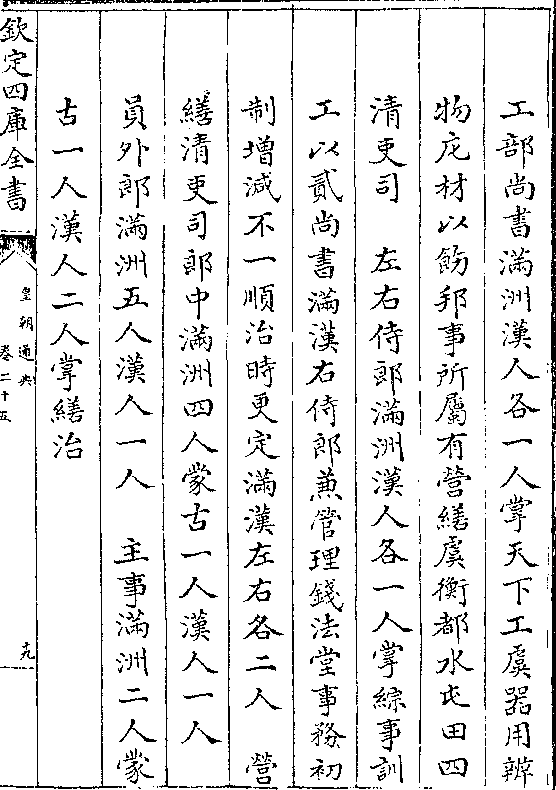 工部尚書滿洲漢人各一人掌天下工虞器用辨
物庀材以飭邦事所屬有營繕虞衡都水屯田四
清吏司　左右侍郎滿洲漢人各一人掌綜事訓
工以貳尚書滿漢右侍郎兼管理錢法堂事務初
制增減不一順治時更定滿漢左右各二人　營
繕清吏司郎中滿洲四人蒙古一人漢人一人
員外郎滿洲五人漢人一人　主事滿洲二人蒙
古一人漢人二人掌繕治
欽定四庫全書
皇朝通典
卷二十五
九